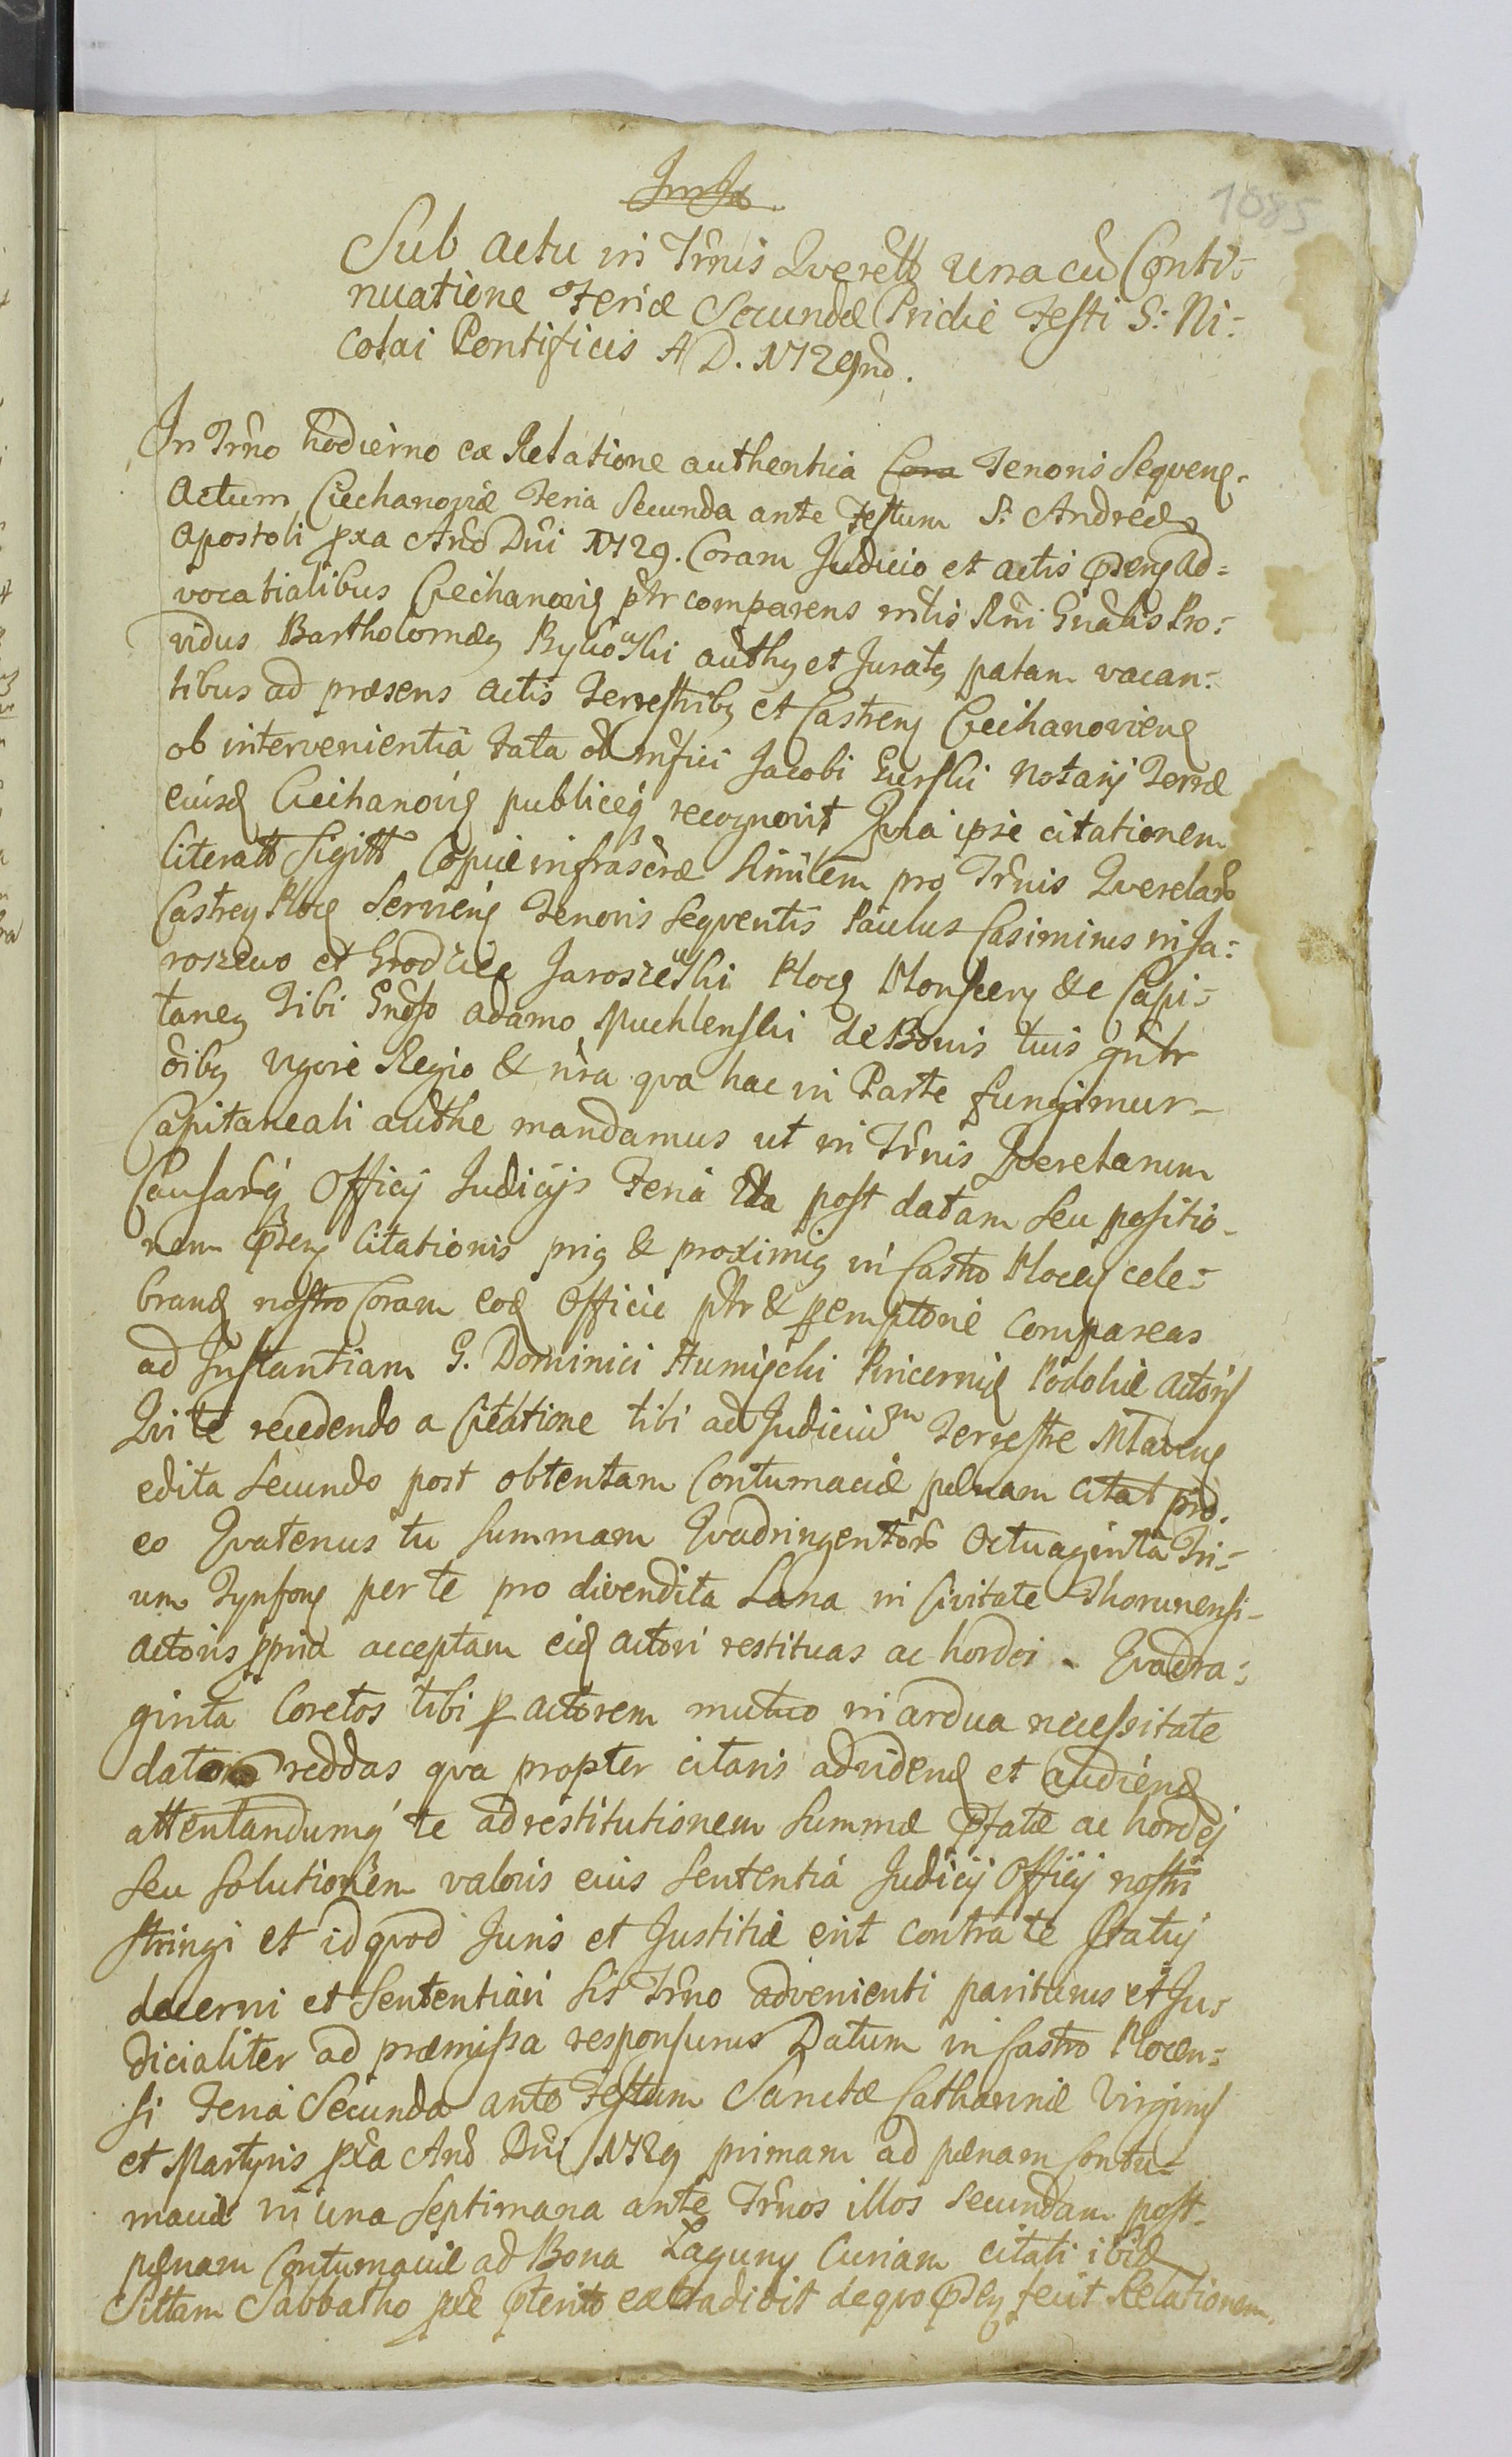 1085
Sub actu in Trnis Querell una cu Conti-
nuatione Feriæ Secundæ Pridie Festi S: Ni-
colai Pontificis A D. 1729no.
In Trno hodierno ex Relatione authentica Tenoris Sequens.
Actum Ciechanoviæ Feria Secunda ante Festum S: Andreæ
Apostoli pxa Anno Dni 1729. Coram Judicio et actis præsens Ad-
vocatialibus Ciechanovien ptr comparens mnlis Rni Gnalis Pro-
vidus Bartholomæus authus et Juratus palam vacan-
tibus ad præsens actis Terrestribus et Castren Ciechanovien
ob intervenientia fata olim mfici Jacobi Gurski Notarij Terræ
eiusd Ciechanovien publiceq recognovit Quia ipse citationem
literatt Sigitt Copiæ infrascræ Similem pro Trnis Querelaru
Castren Ploc Servien Tenoris Sequentis Paulus Casimirus in Ja-
roszewo et Grodziec Jaroszewski Ploc &c Capi-
taneus Tibi Gnoso Adamo Muchlenski de Bonis tuis gnlr
oibus vigore Regio & nra qua hac in Parte fungimur
Capitaneali authe mandamus ut in Trnis Querelarum
Causarq Officij Judicijs Feria 2da post datam seu positio-
nem præsens Citationis pris & proximis in Castro Plocen cele-
brand nostro Coram eod Officio ptr & peremptorie Compareas
ad Instantiam G. Dominici Humięcki Pincernid Podoliæ actoris
Qui te recedendo a Citatione tibi ad Judicium Terrestre Mlaven
edita Secundo post obtentam Contumaciæ pænam citat pro
eo Quatenus tu Summam Quadringentoru Octuaginta Tri-
um Tynfonu per te pro divendita Lana in Civitate Thorunensi
actoris ppria acceptam eid actori restituas ac hordei Quadra-
ginta Coretos tibi p actorem mutuo in ardua necessitate
datos reddas qua propter citaris ad vidend et audiend
attentandumq te ad restitutionem Summæ pfatæ ac hordej
seu Solutionem valoris eius Sententia Judicij Officij nostri
stringi et id quod Juris et Justitiæ erit contra te Statuj
decerni et Sententiari sis Trno advenienti pariturus et Ju-
dicialiter ad præmissa responsurus Datum in Castro Plocen-
si Feria Secunda ante Festum Sanctæ Catharinæ Virginis
et Martyris pxa Anno Dni 1729 primam ad pænam Contu-
maciæ in una Septimana ante Trnos illos Secundam post
pænam Contumaciæ ad Bona Laguny Curiam citati ibid
Sittam Sabbatho pxe pterito extradidit de quo præsens fecit Relationem.